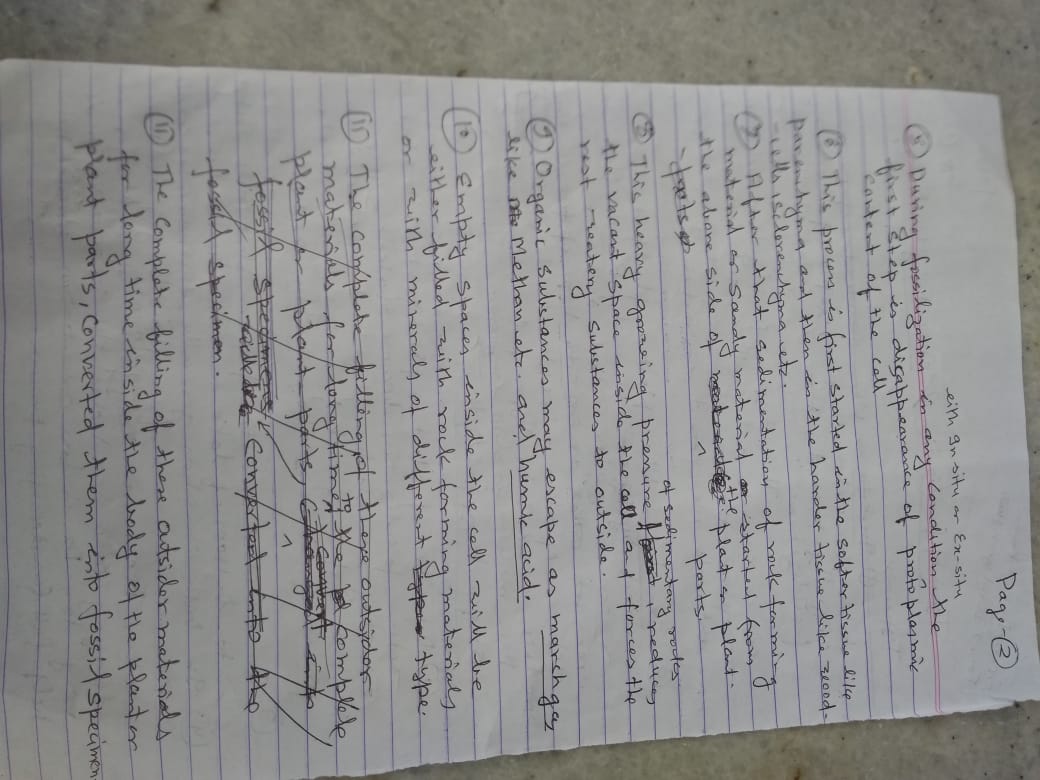 Page-②
eith In-situ or Ex-situ
⑥ During fossilization in any condition the
first step is disappearance of protoplasmic
content of the cell
⑥ This process is first started in the softer tissue like
parenchyma and then in the harder tissue like wood-
-cells, sclerenchyma etc.
⑦ After that sedimentation of rock forming
material or sandy material started from
the above side of the plat or plant-
parts.
⑧ This heavy growing pressure of sedimentary rocks, reduces
the vacant space inside the cell and forces the
rest watery substances to outside.
⑨ Organic substances may escape as marsh gas
like Methan etc. and humic acid.
⑩ Empty spaces inside the cell will be
either filled with rock forming materials
or with minerals of different type.
⑪ The complete filling of these outsider
materials for long time to the complete
plant or plant parts,
fossil specimen Converted into the
fossil specimen.
⑪ The complete filling of these outsider materials
for long time inside the body of the plant or
plant parts, converted them into fossil specimen